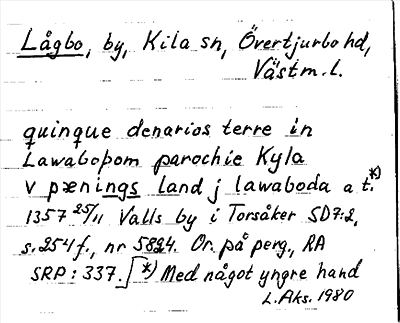 Lågbo, by, Kila sn, Övertjurbo hd,
Västm. l.
quinque denarios terre in
Lawaboþom parochie Kyla
v pænings land j lawaboda a t.*)
1357 25/11 Valls by i Torsåker SD7:2,
s. 254 f., nr 5824. Or. på perg., RA
SRP: 337. *) Med något yngre hand
L. Aks. 1980